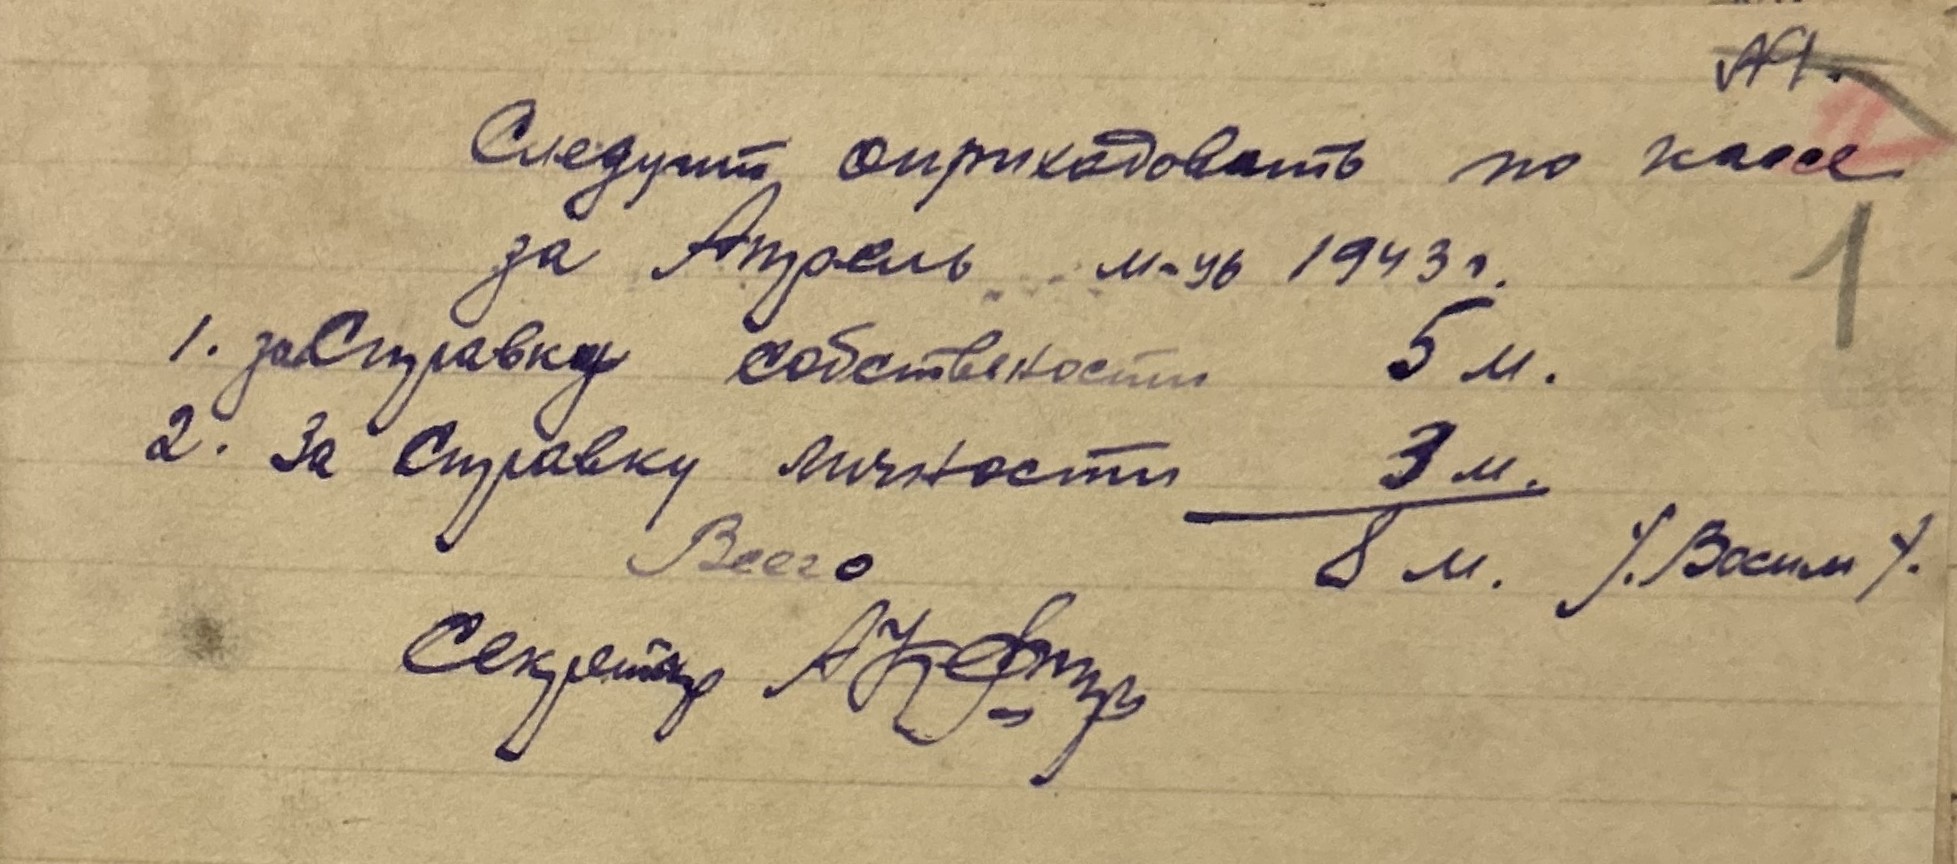 №1.
Следует оприходовать по кассе
1
за Апрель м-ць 1943 г.
1. за Справку собствености 5 м.
2. За Справку личности 3 м.
Всего 8 м. /. Восим /.
Секретар